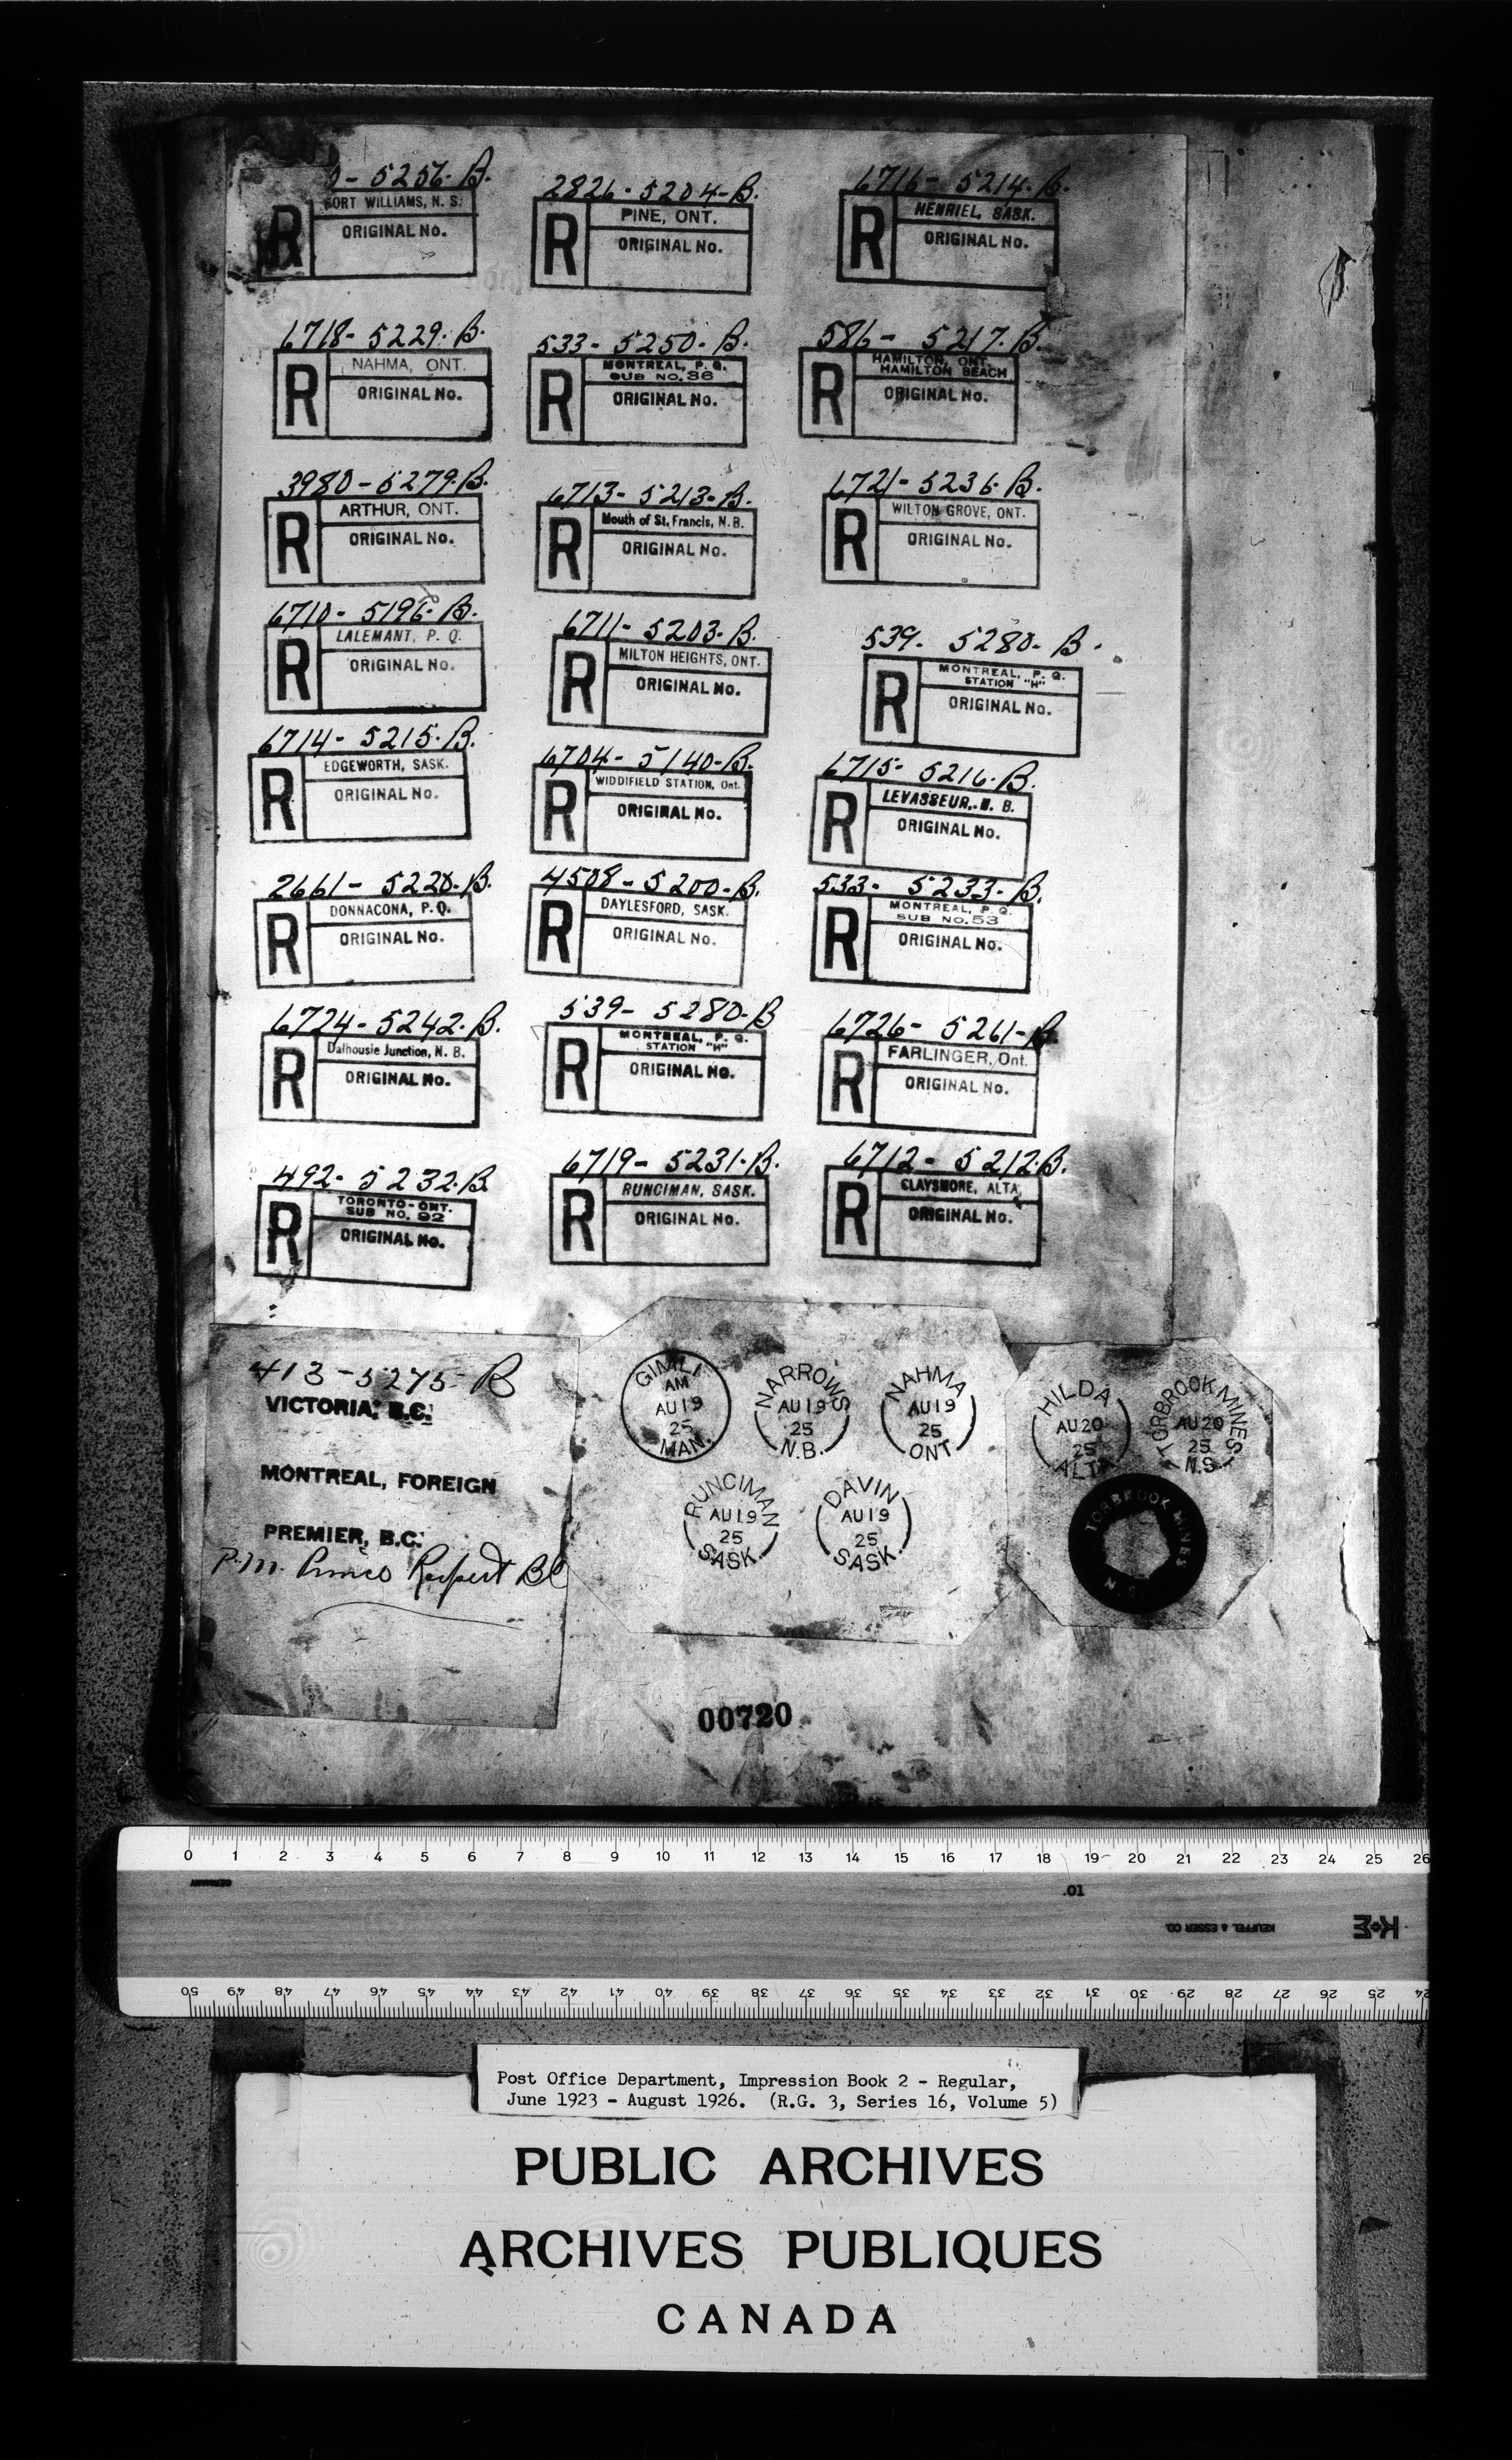 5256. B.
2826-5204-B.
6716-5214.B.
PORT WILLIAMS, N. S.
R
ORIGINAL No.
PINE, ONT.
R
ORIGINAL No.
HENRIEL, SASK.
R
ORIGINAL No.
6718-5229.B.
533-5250.B.
586-5217.B.
NAHMA, ONT.
R
ORIGINAL No.
MONTREAL, P. Q.
SUB NO. 36
R
ORIGINAL No.
HAMILTON, ONT.
HAMILTON BEACH
R
ORIGINAL No.
3980-5279.B.
6713-5213-B.
6721-5236.B.
ARTHUR, ONT.
R
ORIGINAL No.
Mouth of St. Francis, N.B.
R
ORIGINAL No.
WILTON GROVE, ONT.
R
ORIGINAL No.
6710-5196.B.
6711-5203.B.
539. 5280. B.
LALEMANT, P. Q.
R
ORIGINAL No.
MILTON HEIGHTS, ONT.
R
ORIGINAL No.
MONTREAL, P. Q.
STATION "H"
R
ORIGINAL No.
6714-5215.B.
6704-5140-B.
6715-5216.B.
EDGEWORTH, SASK.
R
ORIGINAL No.
WIDDIFIELD STATION, Ont.
R
ORIGINAL No.
LEVASSEUR, N. B.
R
ORIGINAL No.
2661-5220.B.
4508-5200-B.
533-5233-B.
DONNACONA, P.Q.
R
ORIGINAL No.
DAYLESFORD, SASK.
R
ORIGINAL No.
MONTREAL, P. Q.
SUB NO. 53
R
ORIGINAL No.
6724-5242.B.
539-5280-B
6726-5261-B.
Dalhousie Junction, N. B.
R
ORIGINAL No.
MONTREAL, P. Q.
STATION "H"
R
ORIGINAL No.
FARLINGER, Ont.
R
ORIGINAL No.
492-5232.B
6719-5231.B.
6712-5212.B.
TORONTO-ONT.
SUB NO. 92
R
ORIGINAL No.
RUNCIMAN, SASK.
R
ORIGINAL No.
CLAYSMORE, ALTA.
R
ORIGINAL No.
413-5275-B
VICTORIA, B.C.
MONTREAL, FOREIGN
PREMIER, B.C.
P.M. Prince Rupert BC
GIMLI
AM
AU 19
25
MAN.
NARROWS
AU 19
25
N.B.
NAHMA
AU 19
25
ONT
RUNCIMAN
AU 19
25
SASK.
DAVIN
AU 19
25
SASK.
HILDA
AU 20
25
ALTA
TORBROOK MINES
AU 20
25
N.S.
TORBROOK MINES
N.S.
00720
0 1 2 3 4 5 6 7 8 9 10 11 12 13 14 15 16 17 18 19 20 21 22 23 24 25 26
GERMANY
10.
KEUFFEL & ESSER CO.
K+E
50 49 48 47 46 45 44 43 42 41 40 39 38 37 36 35 34 33 32 31 30 29 28 27 26 25 24
Post Office Department, Impression Book 2 - Regular,
June 1923 - August 1926. (R.G. 3, Series 16, Volume 5)
PUBLIC ARCHIVES
ARCHIVES PUBLIQUES
CANADA